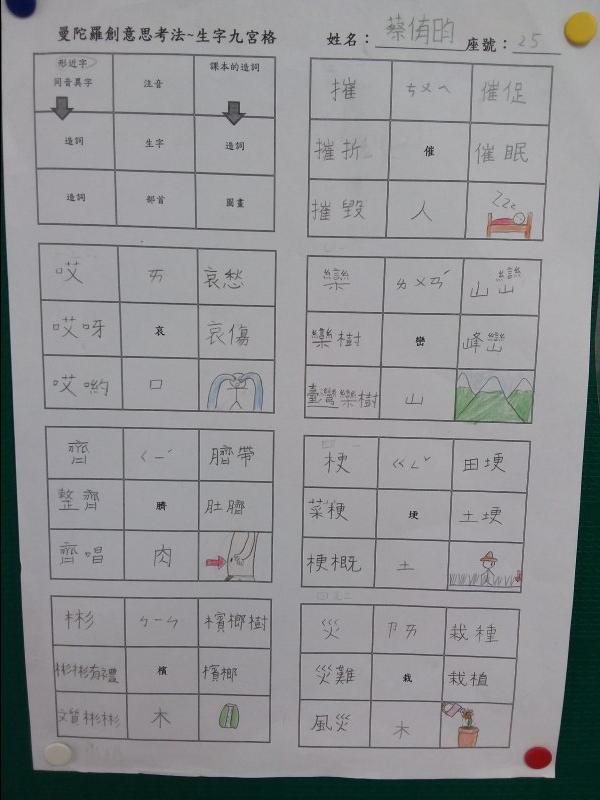 曼陀羅創意思考法~生字九宮格
姓名：蔡侑昀 座號：25
形近字 注音 課本的造詞
同音異字
造詞 生字 造詞
造詞 部首 圖畫
摧 ㄘㄨㄟ 催促
摧折 催 催眠
摧毀 人 Zzz
哎 ㄞ 哀愁
哎呀 哀 哀傷
哎喲 口
欒 ㄌㄨㄢˊ 山巒
欒樹 巒 峰巒
臺灣欒樹 山
齊 ㄑㄧˊ 臍帶
整齊 臍 肚臍
齊唱 肉
梗 ㄍㄥˇ 田埂
菜梗 埂 土埂
梗概 土
彬 ㄅㄧㄣ 檳榔樹
彬彬有禮 檳 檳榔
文質彬彬 木
災 ㄗㄞ 栽種
災難 栽 栽植
風災 木